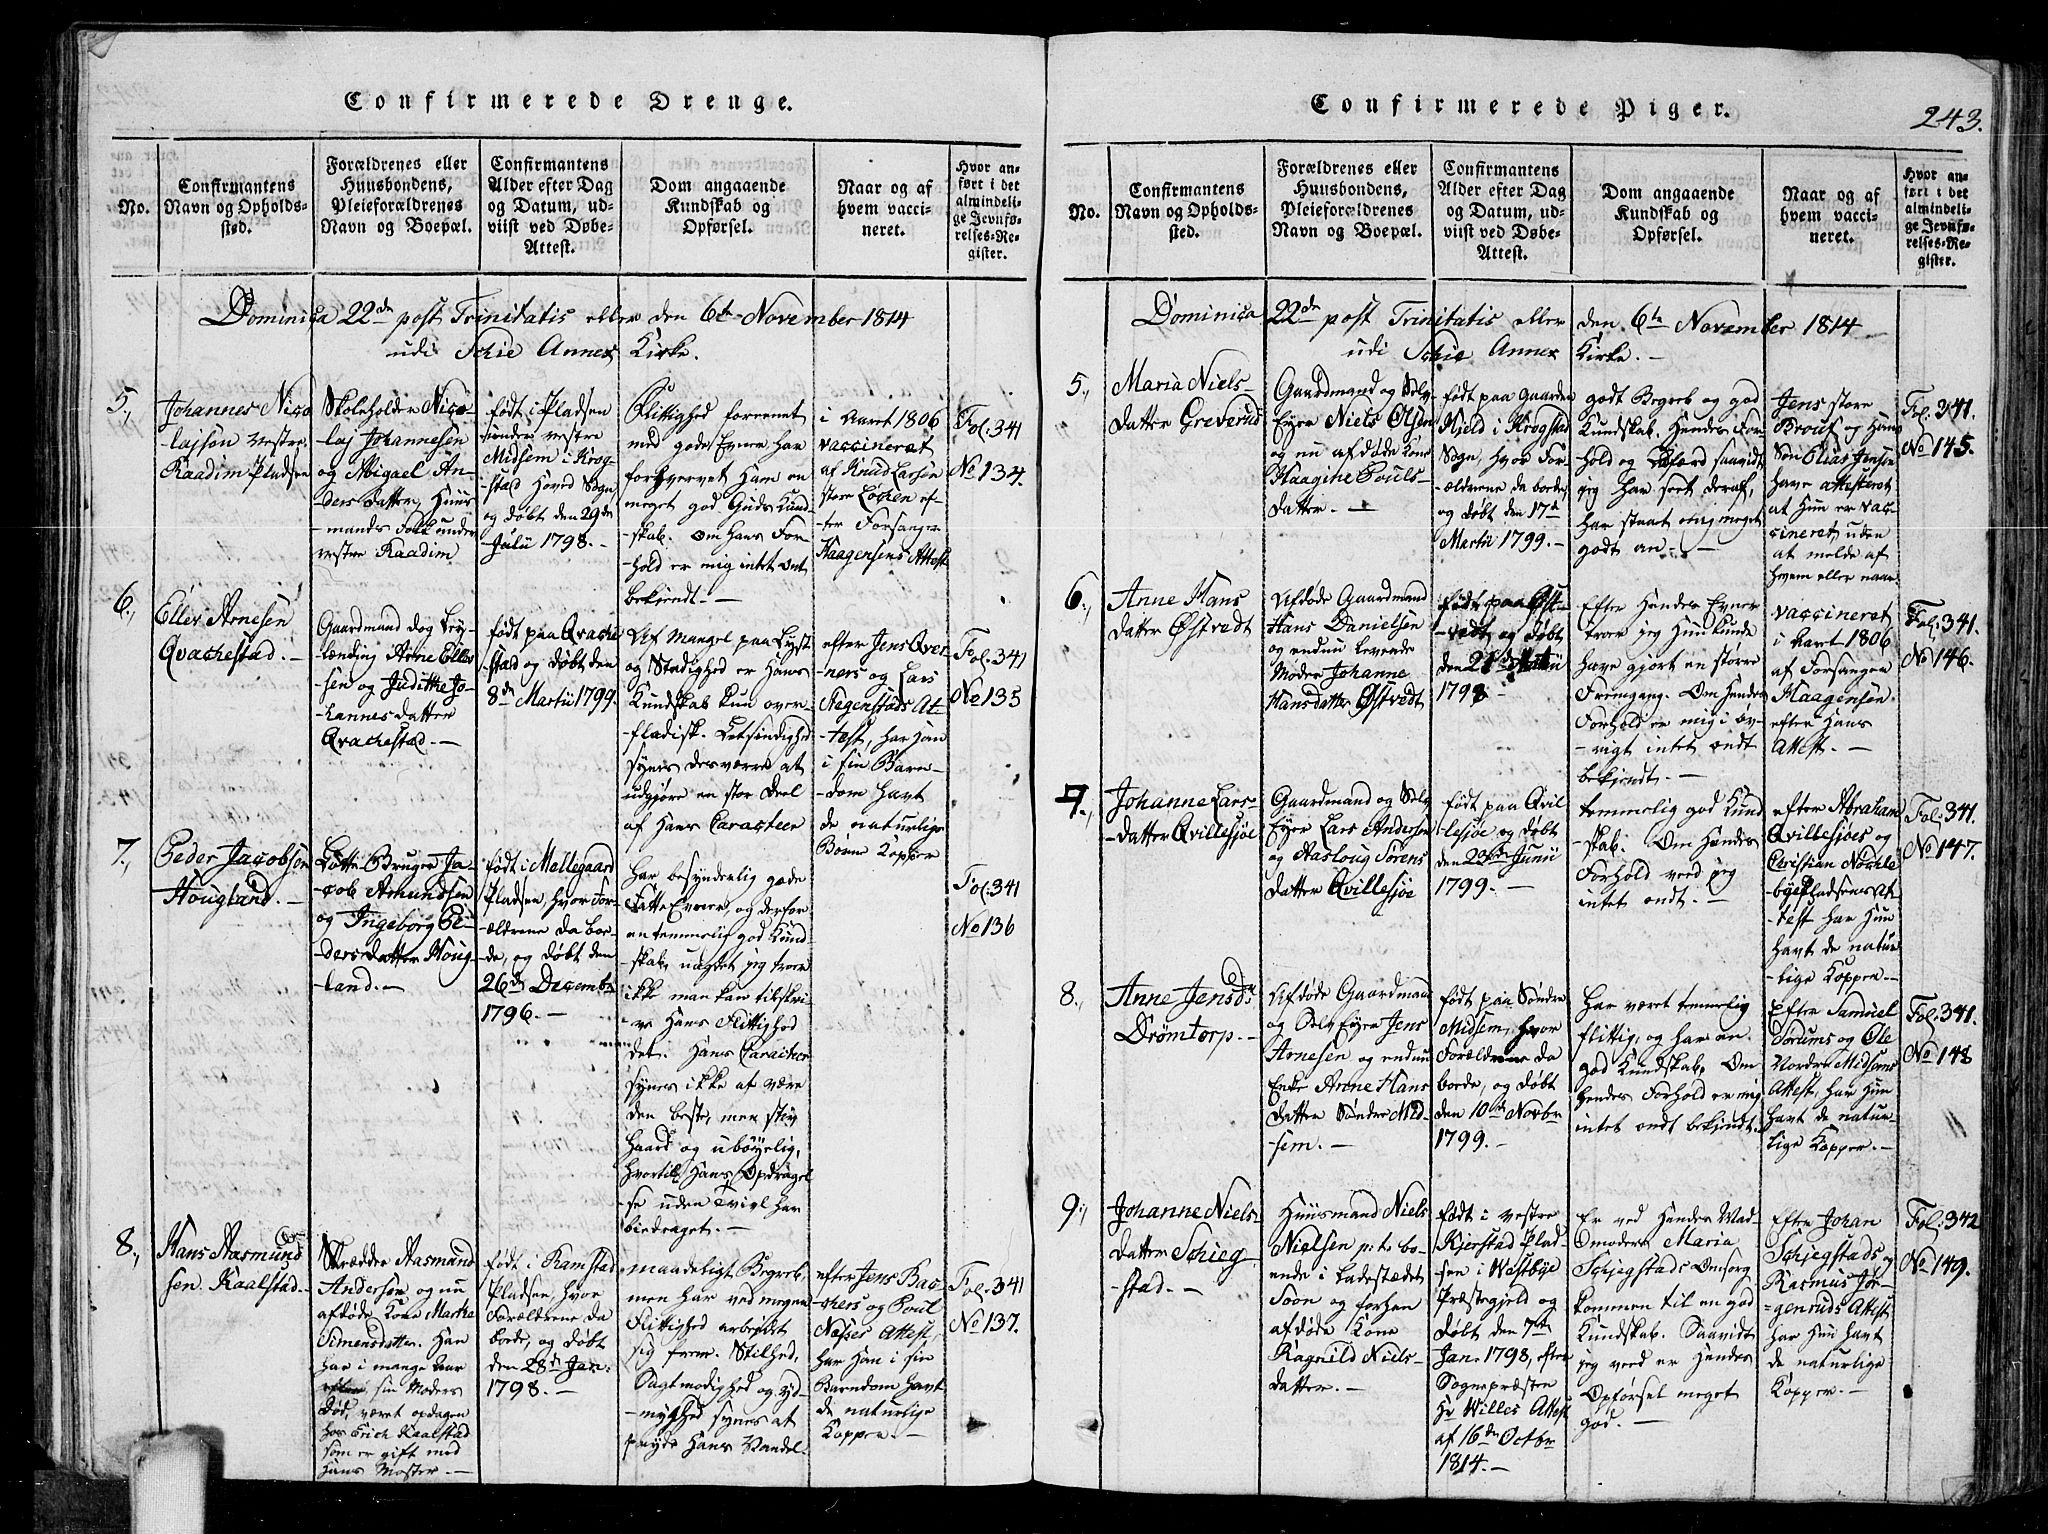 Confirmerede Drenge.
No.
Confirmantens
Navn og Opholds-
sted.
Forældrenes eller
Huusbondens,
Pleieforældrenes
Navn og Boepæl.
Confirmantens
Alder efter Dag
og Datum, ud-
viist ved Døbe-
Attest.
Dom angaaende
Kundskab og
Opførsel.
Naar og af
hvem vacci-
neret.
Hvor an-
ført i det
almindeli-
ge Jevnfø-
relses-Re-
gister.
Dominica 22de post Trinitatis eller den 6te November 1814
udi Schie Annex Kirke.
5.,
Johannes Nico
lajsøn vestre
Raadim Pladsen
Skoleholder Nico-
laj Johannesen
og Abigael An-
ders datter, Huus
mands Folk under
vestre Raadim
født i Pladsen
under vestre
Midsem i Krog-
stad Hoved Sogn
og døbt den 29de
Julii 1798. -
Flittighed forrenet
med gode Evner har
forhvervet Ham en
meget god Guds Kund
-skab. Om hans For-
hold er mig intet ont
bekiendt. -
i Aaret 1806
vaccineret
af Knud Larsen
store Løken ef-
ter Forsanger
Haagensens Attest
Fol. 341
No 134.
6.,
Eller Arnesen
Qvachestad. -
Gaardmand dog Ley-
lænding Arne Eller
sen og Judithe Jo-
hannes datter
Qvachestad. -
født paa Qvache
stad og døbt den
8de Martii 1799.
Af Mangel paa Lyst
og Stadighed er Hans
Kundskab kun over-
fladisk. Letsindighed
synes desværre at
udgjøre en stor Deel
af Hans Caracteer
efter Jens Qver-
ners og Lars
Hagenstads At-
-test, har Han
i sin Barn-
-dom havt
de naturlige
Børne Kopper
Fol. 341
No 135
7.,
Peder Jacobsen
Hougland. -
Lotte Bruger Ja-
cob Amundsen
og Ingeborg Pe-
ders datter Houg
-land. -
født i Mellegaard
Pladsen, hvor For-
ældrene da boe-
de, og døbt den
26de Decembr
1796. -
Har besynderlig gode
Fatte Evner, og derfor
en temmelig god Kund
-skab, uagtet jeg troer
ikke man kan tilskri-
ve Hans Flittighed
det. Hans Caracteer
synes ikke at være
den beste, men stiv
haard og ubøyelig,
hvortil Hans Opdragel
-se uden Tvivl har
bidraget. -
Fol. 341
No 136
8.,
Hans Aasmund
sen Kaalstad.
Skrædder Aasmund
Andersen og nu
afdøde Kone Marthe
Simensdatter. Han
har i mange Aar
efter sin Moders
Død, været opdragen
hos Erich Kaalstad
som er gift med
Hans Moster. -
født i Ramstad
Pladsen, hvor
Forældrene da
boede, og døbt
den 28de Jan:
1798. -
maadeligt Begreb,
men har ved megen
Flittighed arbeydet
sig frem. Stilhed,
Sagtmodighed og yd-
-myghed synes at
pryde Hans Vandel.
efter Jens Bac-
chers og Poul
Næsses Attest,
har Han i sin
Barndom havt
de naturlige
Kopper. -
Fol. 341
No 137.
Confirmerede Piger.
243.
No.
Confirmantens
Navn og Opholds-
sted.
Forældrenes eller
Huusbondens,
Pleieforældrenes
Navn og Boepæl.
Confirmantens
Alder efter Dag
og Datum, ud-
viist ved Døbe-
Attest.
Dom angaaende
Kundskab og
Opførsel.
Naar og af
hvem vacci-
neret.
Hvor an-
ført i det
almindeli-
ge Jevnfø-
relses-Re-
gister.
Dominica 22de post Trinitatis eller den 6te November 1814
udi Schie Annex Kirke. -
5.,
Maria Niels-
datter Greverud
Gaardmand og Selv
Eyer Niels Olsen
og nu afdøde Kone
Haagine Pouls-
datter. -
født paa Gaarden
Kield i Krogstad
Sogn, hvor For-
ældrene da boede,
og døbt den 17de
Martii 1799. -
godt Begreb og god
Kundskab. Hendes For-
hold og Adfærd saavidt
jeg har seet deraf,
har staaet mig meget
godt an. -
Jens store
Brouf og Hans
Søn Elias Jensen
have attesteret
at Hun er vac-
cineret, uden
at melde af
hvem eller naar
Fol. 341.
No 145.
6.,
Anne Hans
datter Østvedt
Afdøde Gaardmand
Hans Danielsen
og endnu levende
Moder Johanne
Hansdatter Østvedt
født paa Øst-
-vedt og døbt
den 21de Martii
1798. -
Efter Hendes Evner
troer jeg Hun kunde
have gjort en større
Fremgang. Om Hendes
Forhold er mig i øv-
-rigt intet ondt
bekiendt. -
vaccineret
i Aaret 1806
af Forsanger
Haagensen
efter Hans
Attest. -
Fol. 341.
No 146.
7.,
Johanne Lars-
-datter Qvillesjøe
Gaardmand og Selv
Eyer Lars Andersen
og Aasloug Sørens
datter Qvillesjøe
født paa Qvil
lesjøe og døbt
den 23de Junii
1799. -
temmelig god Kund
-skab. Om Hendes
Forhold veed jeg
intet ondt. -
efter Abraham
Qvillesjøes og
Christian Nochle
byepladsens At-
-test har Hun
havt de natur
-lige Kopper. -
Fol. 341.
No 147.
8.,
Anne Jensdr
Drømtorp. -
Afdøde Gaardmand
og Selv Eyer Jens
Arnesen og endnu
Enke Anne Hans
datter Søndre Mid-
sem. -
født paa Søndre
Midsem, hvor
Forældrene da
boede, og døbt
den 10de Novbr
1799. -
Har været temmelig
flittig, og har en
god Kundskab. Om
hendes Forhold er mig
intet ondt bekiendt. -
Efter Samuel
Sorums og Ole
Nordre Midsems
Attest, har Hun
havt de natur-
lige Kopper. -
Fol. 341.
No 148
9.,
Johanne Niels-
datter Schieg
-stad. -
Huusmand Niels
Nielsen p: t: bo-
ende i Ladestædet
Soon og forhen
afdøde Kone
Ragnild Niels-
datter. -
født i vestre
Kjerstad Plad-
sen i Westbye
Præstegjeld og
døbt den 7de
Jan. 1798, efter
Sognepræsten
Hr Willes Attest
af 16de Octbr
1814. -
Er ved Hendes Mad-
Omoder Maria
Schjegstads Omsorg
kommen til en god
Kundskab. Saavidt
jeg veed er Hendes
Opførsel meget
god. -
Efter Johan
Schjegstads og
Rasmus Jør-
-genruds Attest
har Hun havt
de naturlige
Kopper. -
Fol: 342
No 149.